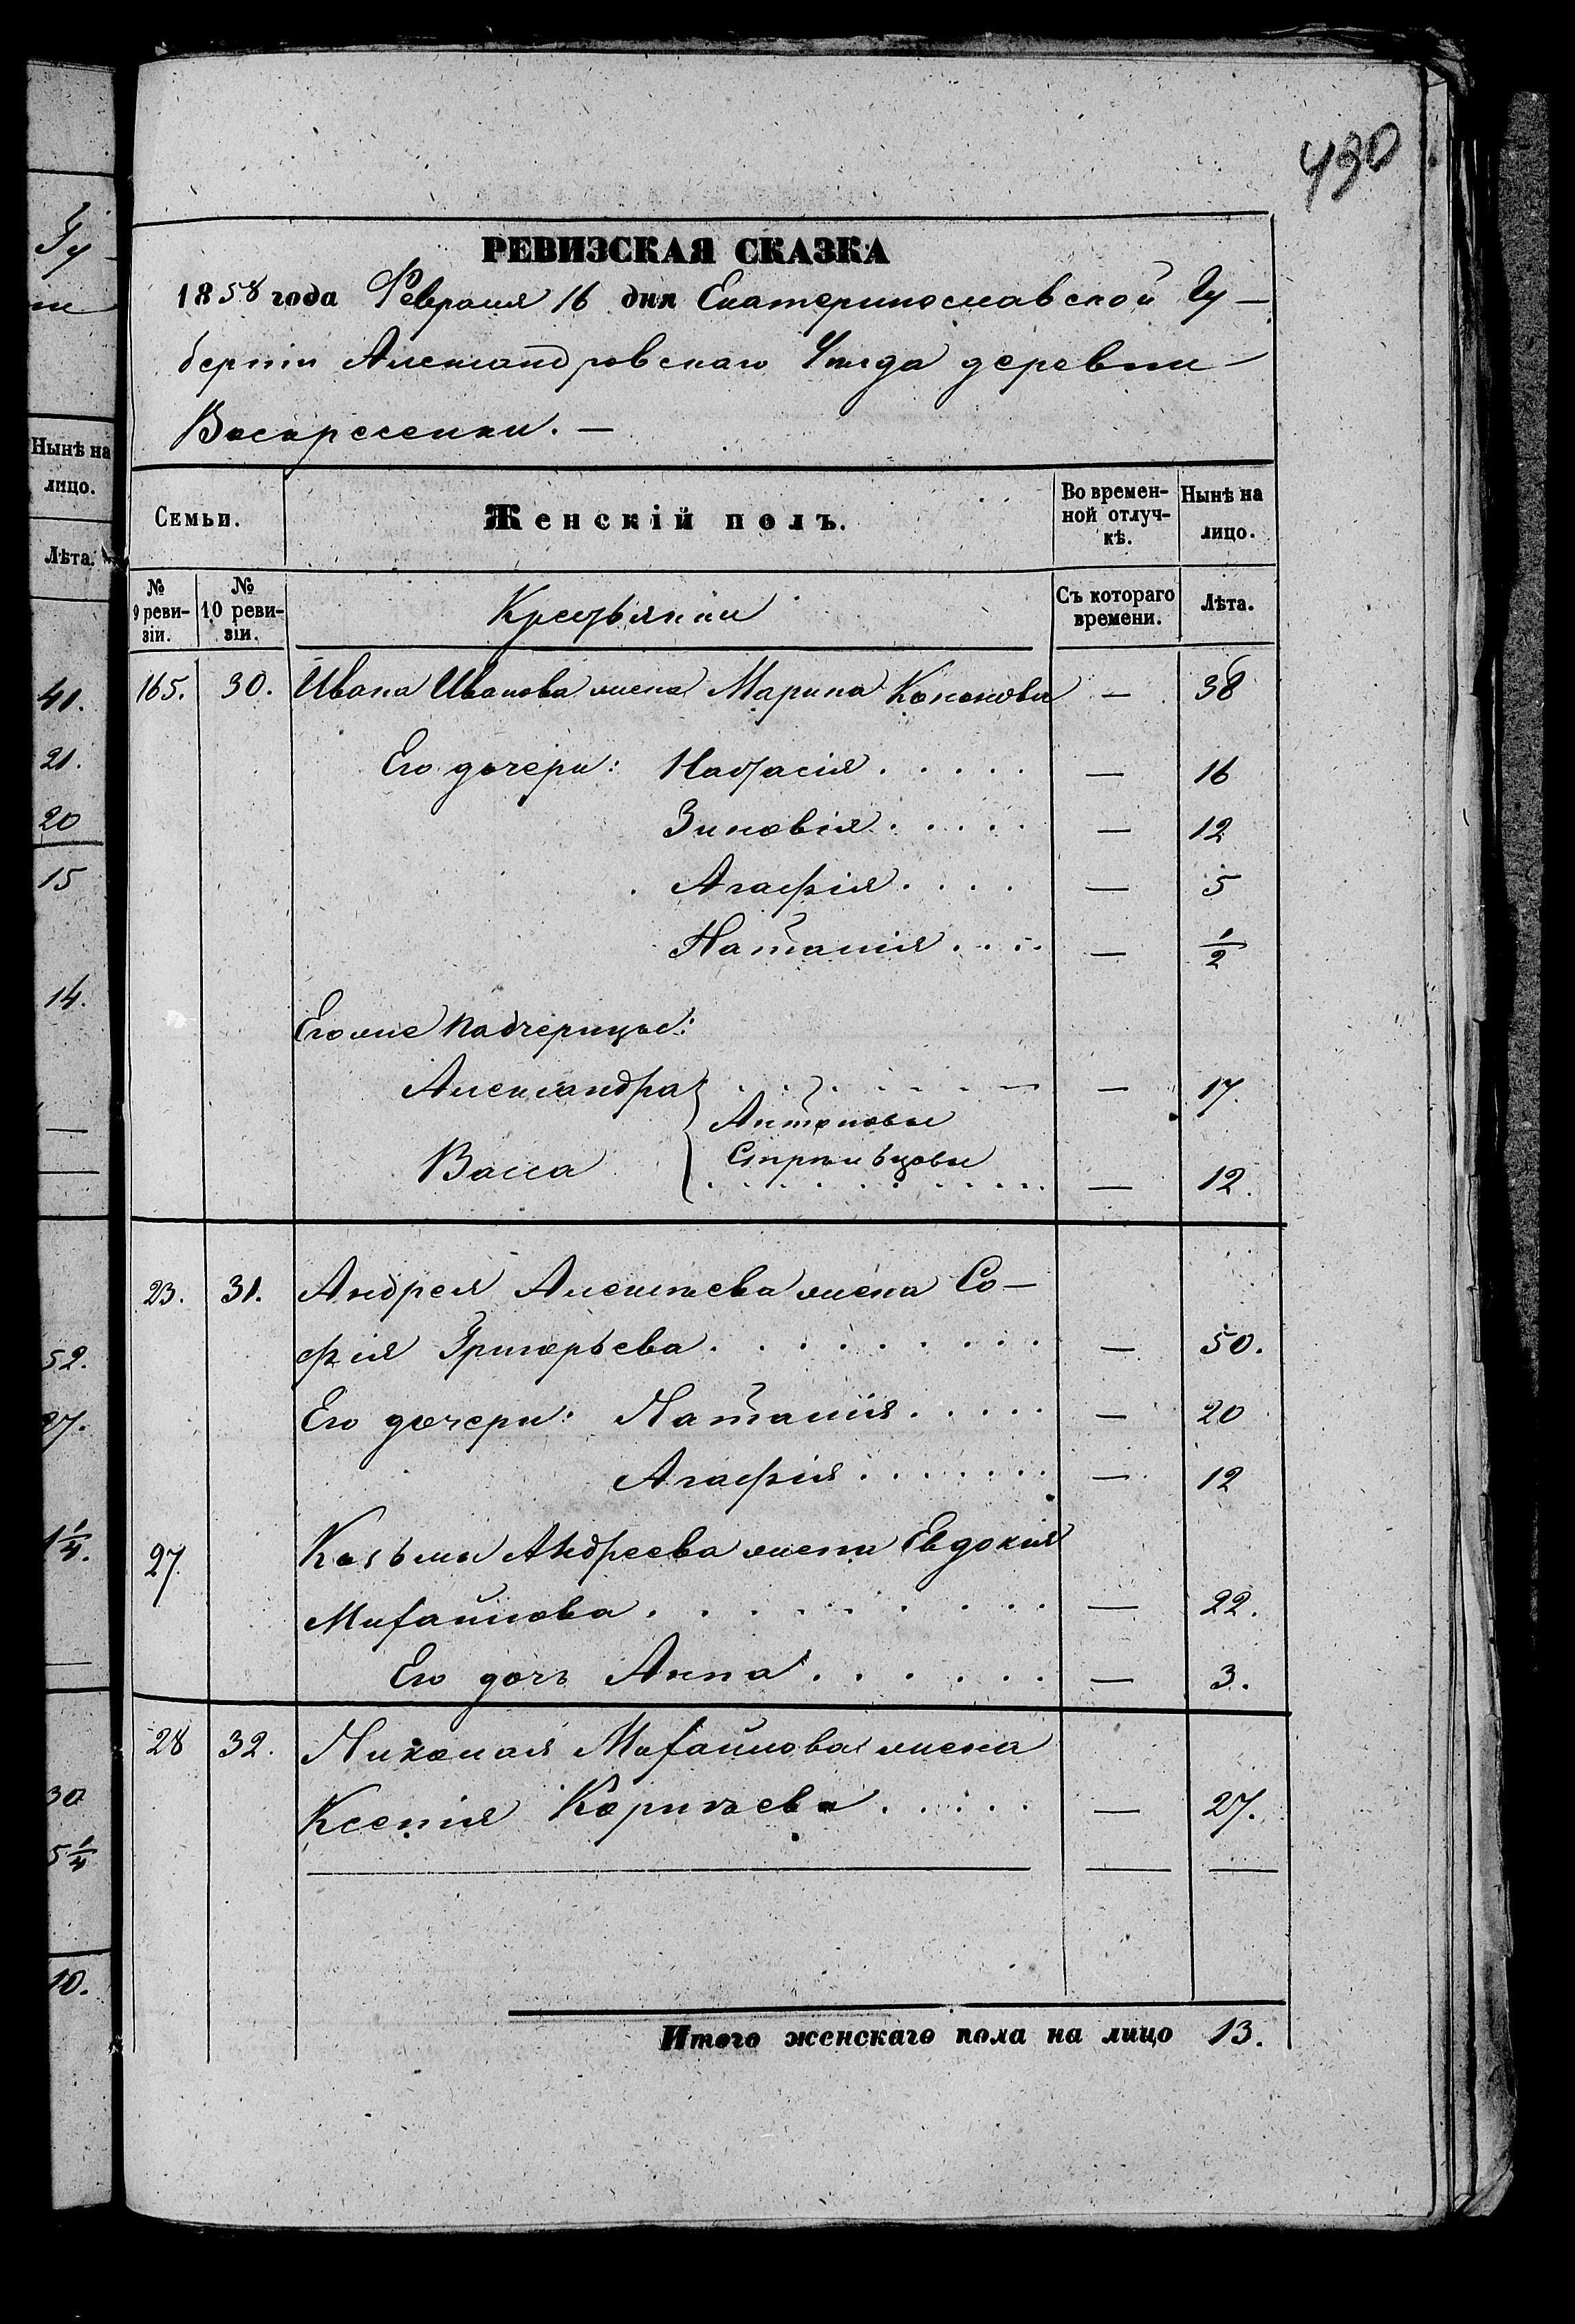 490
Гу-
ни
Нынѣ на
лицо.
Лѣта.
41.
21.
20
15
14.
52.
27.
1 1/4.
30
5 1/4
10.
РЕВИЗСКАЯ СКАЗКА
1858 года Февраля 16 дня Екатеринославской Гу-
берніи Александровскаго Уѣзда деревни
Воскресенки. —
Семьи.
Женскій полъ.
Во времен-
ной отлуч-
кѣ.
Нынѣ на
лицо.
№
9 реви-
зіи.
№
10 реви-
зіи.
Крестьянки
Съ котораго
времени.
Лѣта.
165. 30. Ивана Иванова жена Марина Кононова — 38
Его дочери: Настасія . . . . . — 16
Зиновія . . . . . — 12
Агафія . . . . — 5
Наталія . . . . — 1/2
Его же падчерицы:
Александра . . . . . . . — 17.
Антоновы
Стрѣльцовы
Васса . . . . . . . . — 12.
23. 31. Андрея Алексѣева жена Со-
фія Григорьева . . . . . . . . . — 50.
Его дочери: Наталія . . . . . — 20
Агафія . . . . . . . — 12
27. Козьмы Андреева жена Евдокія
Михайлова . . . . . . . . . . — 22.
Его дочь Анна . . . . . . — 3.
28 32. Николая Михайлова жена
Ксенія Корнѣева . . . . . — 27.
Итого женскаго пола на лицо 13.